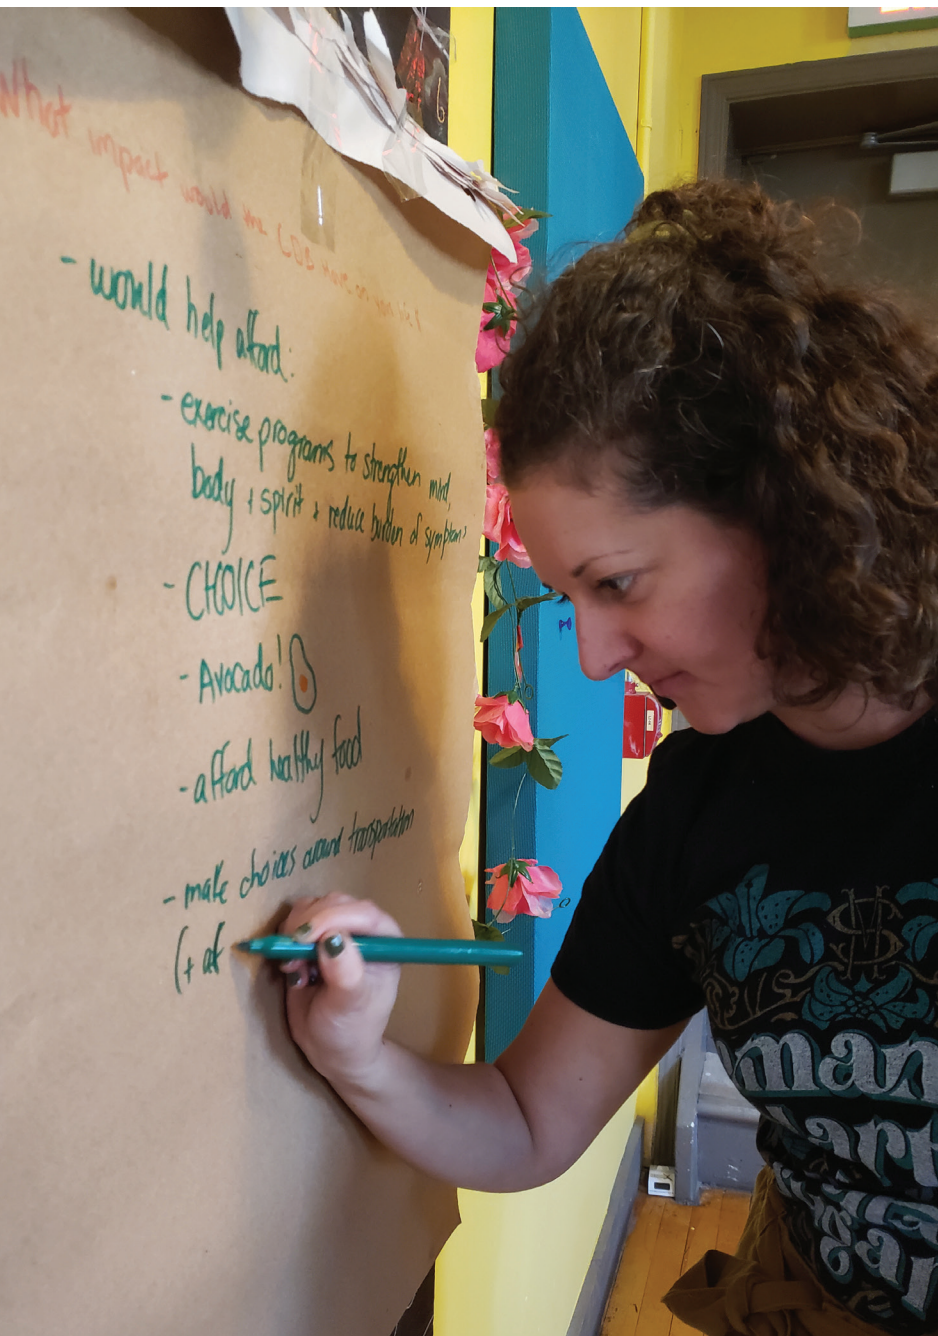 What impact would the CDB have on your life?
- would help afford:
- exercise programs to strengthen mind,
body + spirit + reduce burden of symptoms
- CHOICE
- Avocado!
- afford healthy food
- make choices around transportation
(+ af